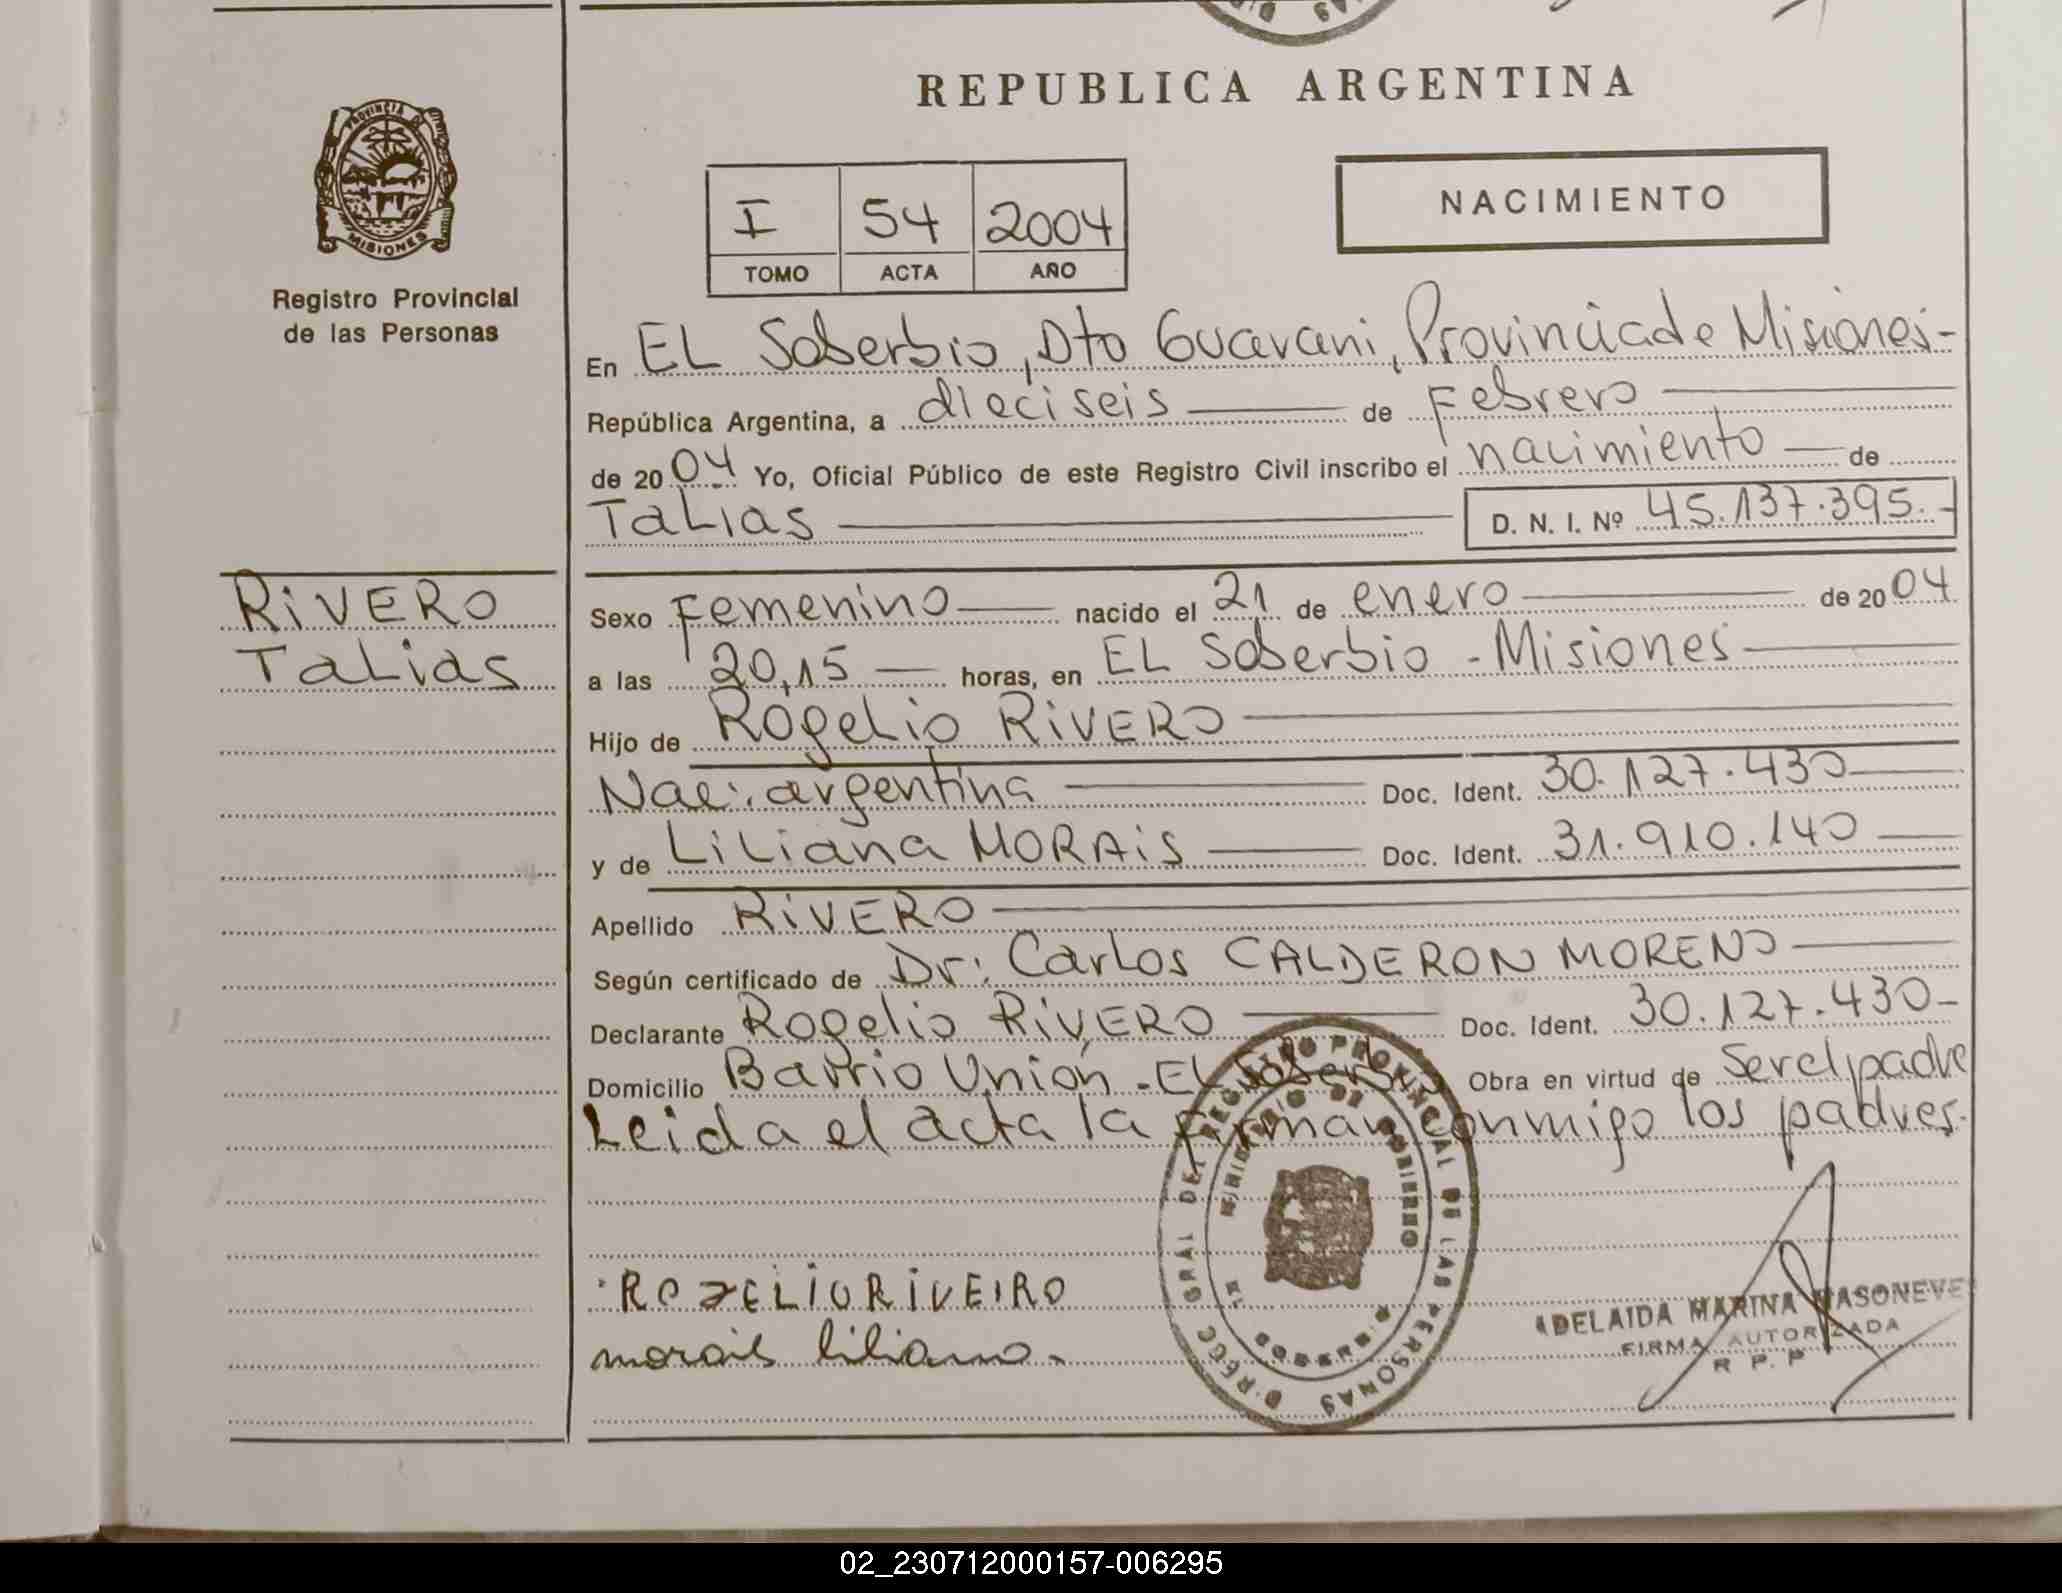 REPUBLICA ARGENTINA
PROVINCIA DE MISIONES
Registro Provincial
de las Personas
I 54 2004
TOMO ACTA AÑO
NACIMIENTO
En EL Soberbio, Dto Guarani, Provincia de Misiones-
República Argentina, a dieciseis de Febrero
de 2004 Yo, Oficial Público de este Registro Civil inscribo el nacimiento de
TaLias D. N. I. Nº 45.137.395.-
RiVERO
TaLias
Sexo Femenino nacido el 21 de enero de 2004
a las 20,15 horas, en EL Soberbio - Misiones
Hijo de Rogelio RiVERO
Nac: argentina Doc. Ident. 30.127.430
y de LiLiana MORAiS Doc. Ident. 31.910.140
Apellido RiVERO
Según certificado de Dr: Carlos CALDERON MORENO
Declarante Rogelio RiVERO Doc. Ident. 30.127.430-
Domicilio Barrio Unión - EL Soberbio Obra en virtud de ser el padre
Leida el acta la firman conmigo los padres.
ROJELIO RIVEIRO
morais liliana.
DIRECC GRAL DEL REGISTRO PROVINCIAL DE LAS PERSONAS
MINISTERIO DE GOBIERNO
MISIONES
ADELAIDA MARINA
FIRMA AUTORIZADA
R P. P
02_230712000157-006295